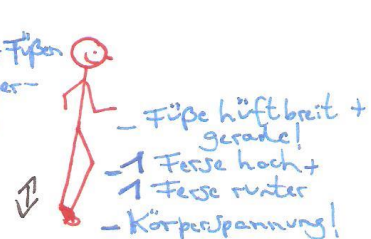 Füßen
er-
- Füße hüftbreit +
gerade!
- 1 Ferse hoch +
1 Ferse runter
- Körperspannung!